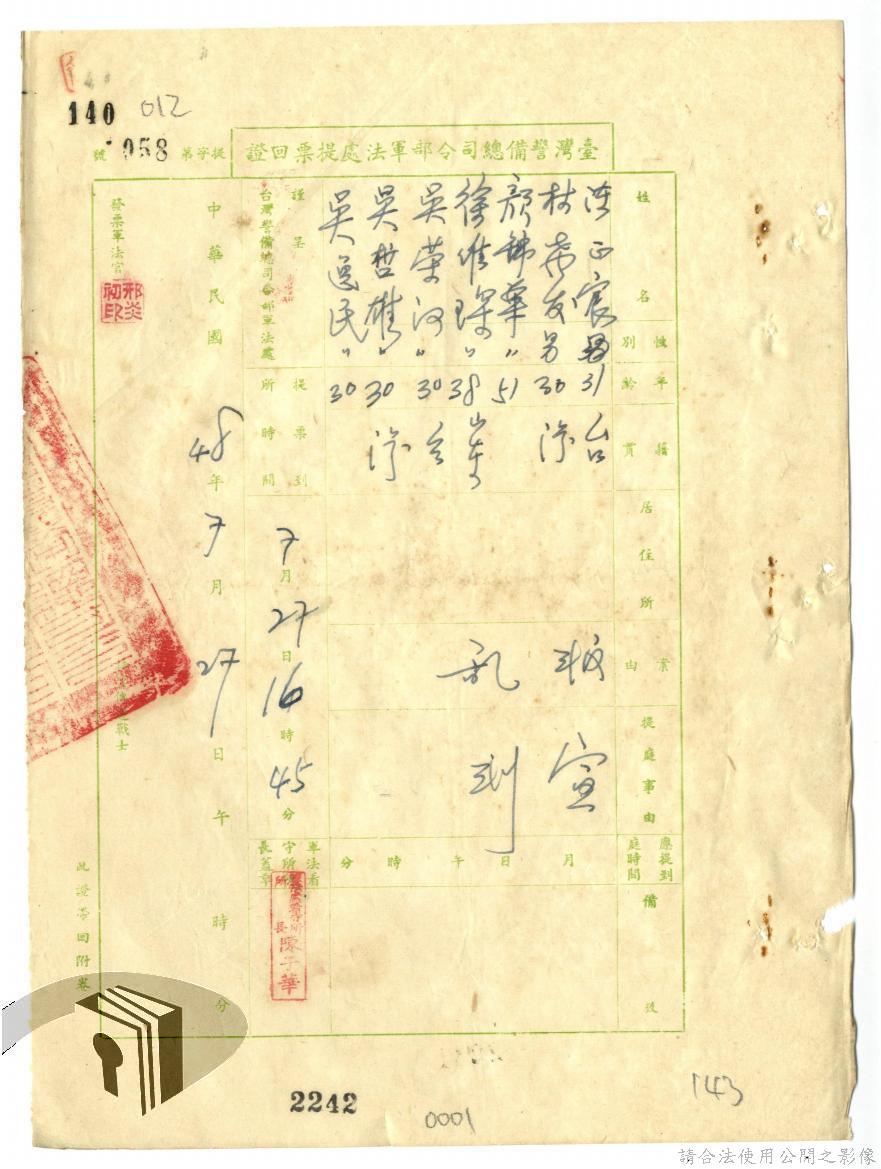 140 012
臺灣警備總司令部軍法處提票回證
提字第058號
姓名
性別
年齡
籍貫
居住所
案由
提庭事由
應提到庭時間
備
正宸 男 31 台
林 友 男 30
顏錦華 〃 51
徐維琛 〃 38 山東
吳榮河 〃 30 台
吳哲雄 〃 30
吳逸民 〃 30
叛亂
宣判
月 日 午 時 分
謹呈
台灣警備總司令部軍法處
提票到所時間
7月27日16時45分
軍法看守所所長蓋章
所長 陳子華
中華民國48年7月27日午時分
發票軍法官
邢炎初印
戰士
此證帶回附卷
2242
0001
143
請合法使用公開之影像